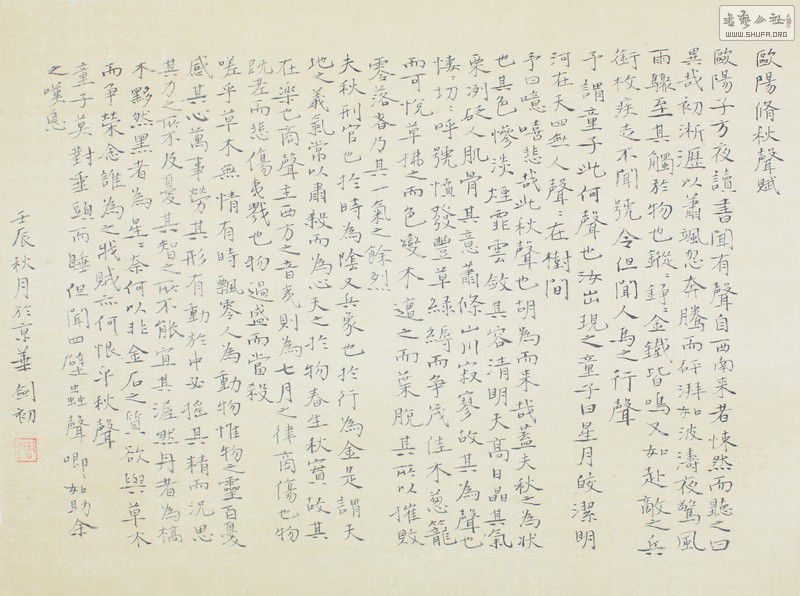 歐陽脩秋聲賦
歐陽子方夜讀書聞有聲自西南来者悚然而聽之曰
異哉初淅瀝以蕭颯忽奔騰而砰湃如波濤夜驚風
雨驟至其觸於物也鏦〻錚〻金鐵皆鳴又如赴敵之兵
銜枚疾走不聞號令但聞人馬之行聲
予謂童子此何聲也汝出現之童子曰星月皎潔明
河在天四無人聲〻在樹間
予曰噫嘻悲哉此秋聲也胡為而来哉蓋夫秋之為状
也其色慘淡煙霏雲斂其容清明天高日晶其氣
栗冽砭人肌骨其意蕭條山川寂寥故其為聲也
悽〻切〻呼號憤發豐草綠縟而争茂佳木葱籠
而可悅草拂之而色變木遭之而葉脫其所以摧敗
零落者乃其一氣之餘烈
夫秋刑官也於時為陰又兵象也於行為金是謂天
地之義氣常以肅殺而為心天之於物春生秋實故其
在樂也商聲主西方之音夷則為七月之律商傷也物
既老而悲傷夷戮也物過盛而當殺
嗟乎草木無情有時飄零人為動物惟物之靈百憂
感其心萬事勞其形有動於中必搖其精而況思
其力之所不及憂其智之所不能宜其渥然丹者為槁
木黟然黑者為星〻奈何以非金石之質欲與草木
而争榮念誰為之戕賊亦何恨乎秋聲
童子莫對垂頭而睡但聞四壁蟲聲唧〻如助余
之嘆息
壬辰秋月於京華劍初
WWW.SHUFA.ORG